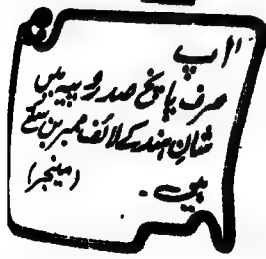 آپ
صرف پانچ صد روپیہ میں
شانِ ہند کے لائف ممبر بن سکتے
ہیں۔ (مینجر)